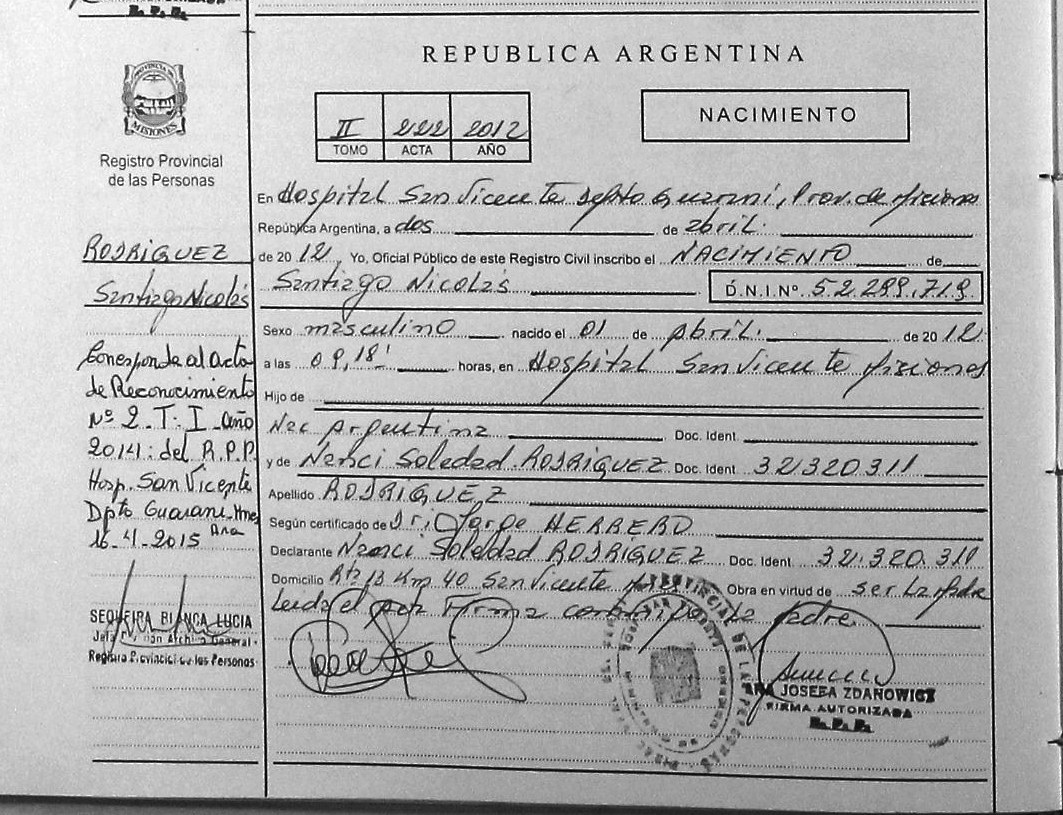 R. P. P.
REPUBLICA ARGENTINA
NACIMIENTO
II 222 2012
TOMO ACTA AÑO
PROVINCIA DE
MISIONES
Registro Provincial
de las Personas
RODRIGUEZ
Santiago Nicolás
Corresponde al Acta
de Reconocimiento
Nº 2 T. I año
2014 del R.P.P.
Hosp. San Vicente
Dpto Guarani Mnes
16-4-2015
SEQUEIRA BIANCA LUCIA
Jefa División Archivo General
Registro Provincial de las Personas
En Hospital San Vicente Depto Guaraní, Prov. de Misiones
República Argentina, a dos de abril
de 2012, Yo, Oficial Público de este Registro Civil inscribo el NACIMIENTO de
Santiago Nicolás D.N.I.Nº 52.299.719
Sexo masculino nacido el 01 de Abril de 2012
a las 09,18' horas, en Hospital San Vicente Misiones
Hijo de
Nac Argentina Doc. Ident.
y de Nanci Soledad RODRIGUEZ Doc. Ident. 32.320.311
Apellido RODRIGUEZ
Según certificado de Dr. Jorge HERRERO
Declarante Nanci Soledad RODRIGUEZ Doc. Ident. 32.320.311
Domicilio Km 40 San Vicente Obra en virtud de ser la Madre
Leida el acta Firma la Madre
ANA JOSEFA ZDANOWICZ
FIRMA AUTORIZADA
R. P. P.